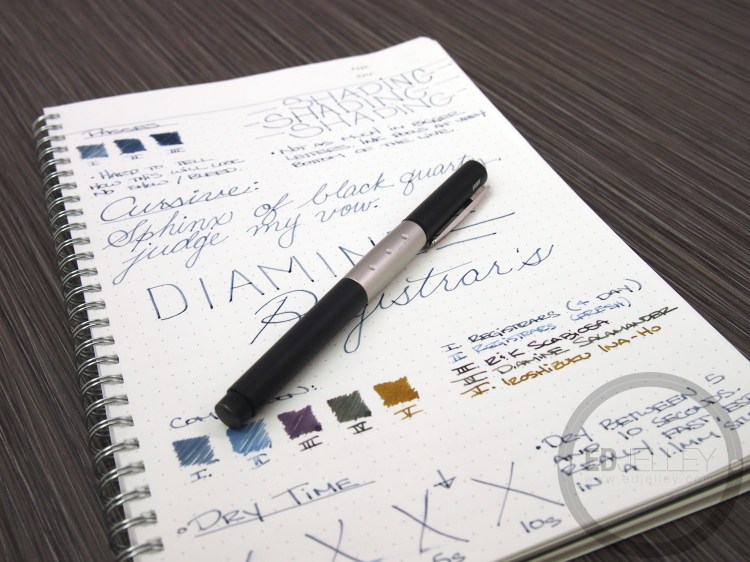 SHADING
SHADING
SHADING
PASSES
I II III
• HARD TO TELL
HOW THIS WILL LOOK
TO SHOW / BLEED.
• NOT AS MUCH IN BIGGER
LETTERS, INK POOLS AT VERY
BOTTOM OF THE LINE.
Cursive:
Sphinx of black quartz
judge my vow.
DIAMINE
Registrar's
I REGISTRARS (4 DAY)
II REGISTRARS (FRESH)
III R&K SCABIOSA
IV DIAMINE SALAMANDER
V IROSHIZUKU INA-HO
I. II III IV V
• DRY BETWEEN 5
AND 10 SECONDS.
REALLY FAST
IN A 1.1MM
• DRY TIME
5s 10s
ED JELLEY
www.edjelley.com